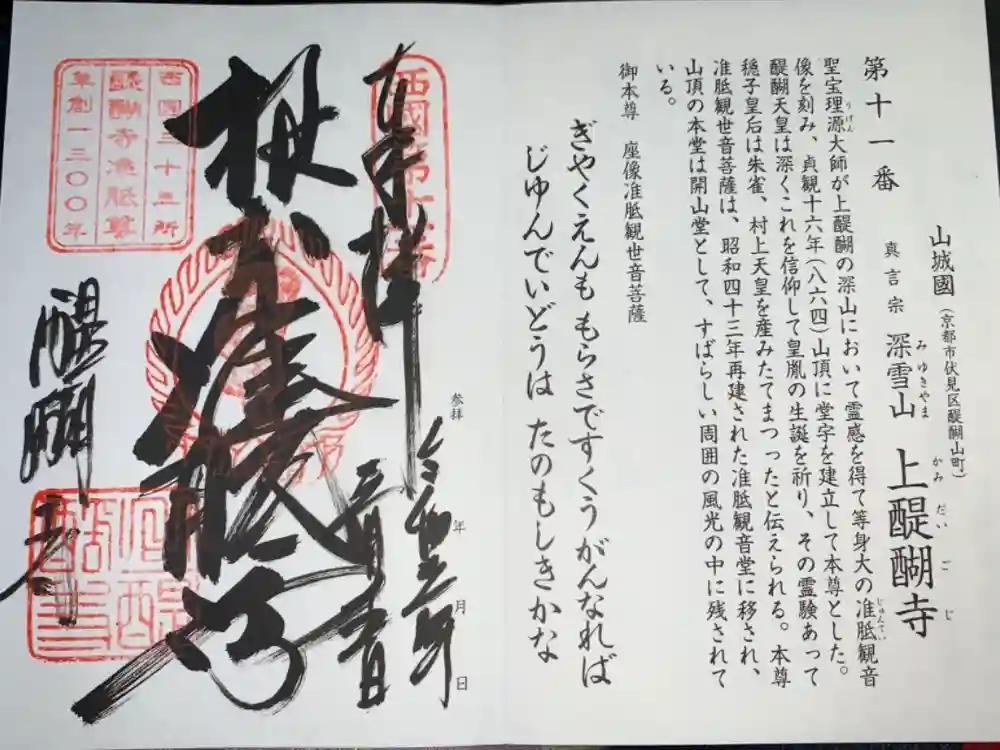 山城國(京都市伏見区醍醐山町)
第十一番
真言宗 深雪山 上醍醐寺
みゆきやま かみだいごじ
聖宝理源大師が上醍醐の深山において霊感を得て等身大の准胝観音
りげん じゅんでい
像を刻み、貞観十六年(八六四)山頂に堂宇を建立して本尊とした。
醍醐天皇は深くこれを信仰して皇胤の生誕を祈り、その霊験あって
穏子皇后は朱雀、村上天皇を産みたてまつったと伝えられる。本尊
准胝観世音菩薩は、昭和四十三年再建された准胝観音堂に移され、
山頂の本堂は開山堂として、すばらしい周囲の風光の中に残されて
いる。
御本尊 座像准胝観世音菩薩
ぎやくえんも もらさですくうがんなれば
じゅんでいどうは たのもしきかな
参拝 年 月 日
奉拝
西國第十一番
西国三十三所
醍醐寺准胝尊
草創一三〇〇年
醍醐寺